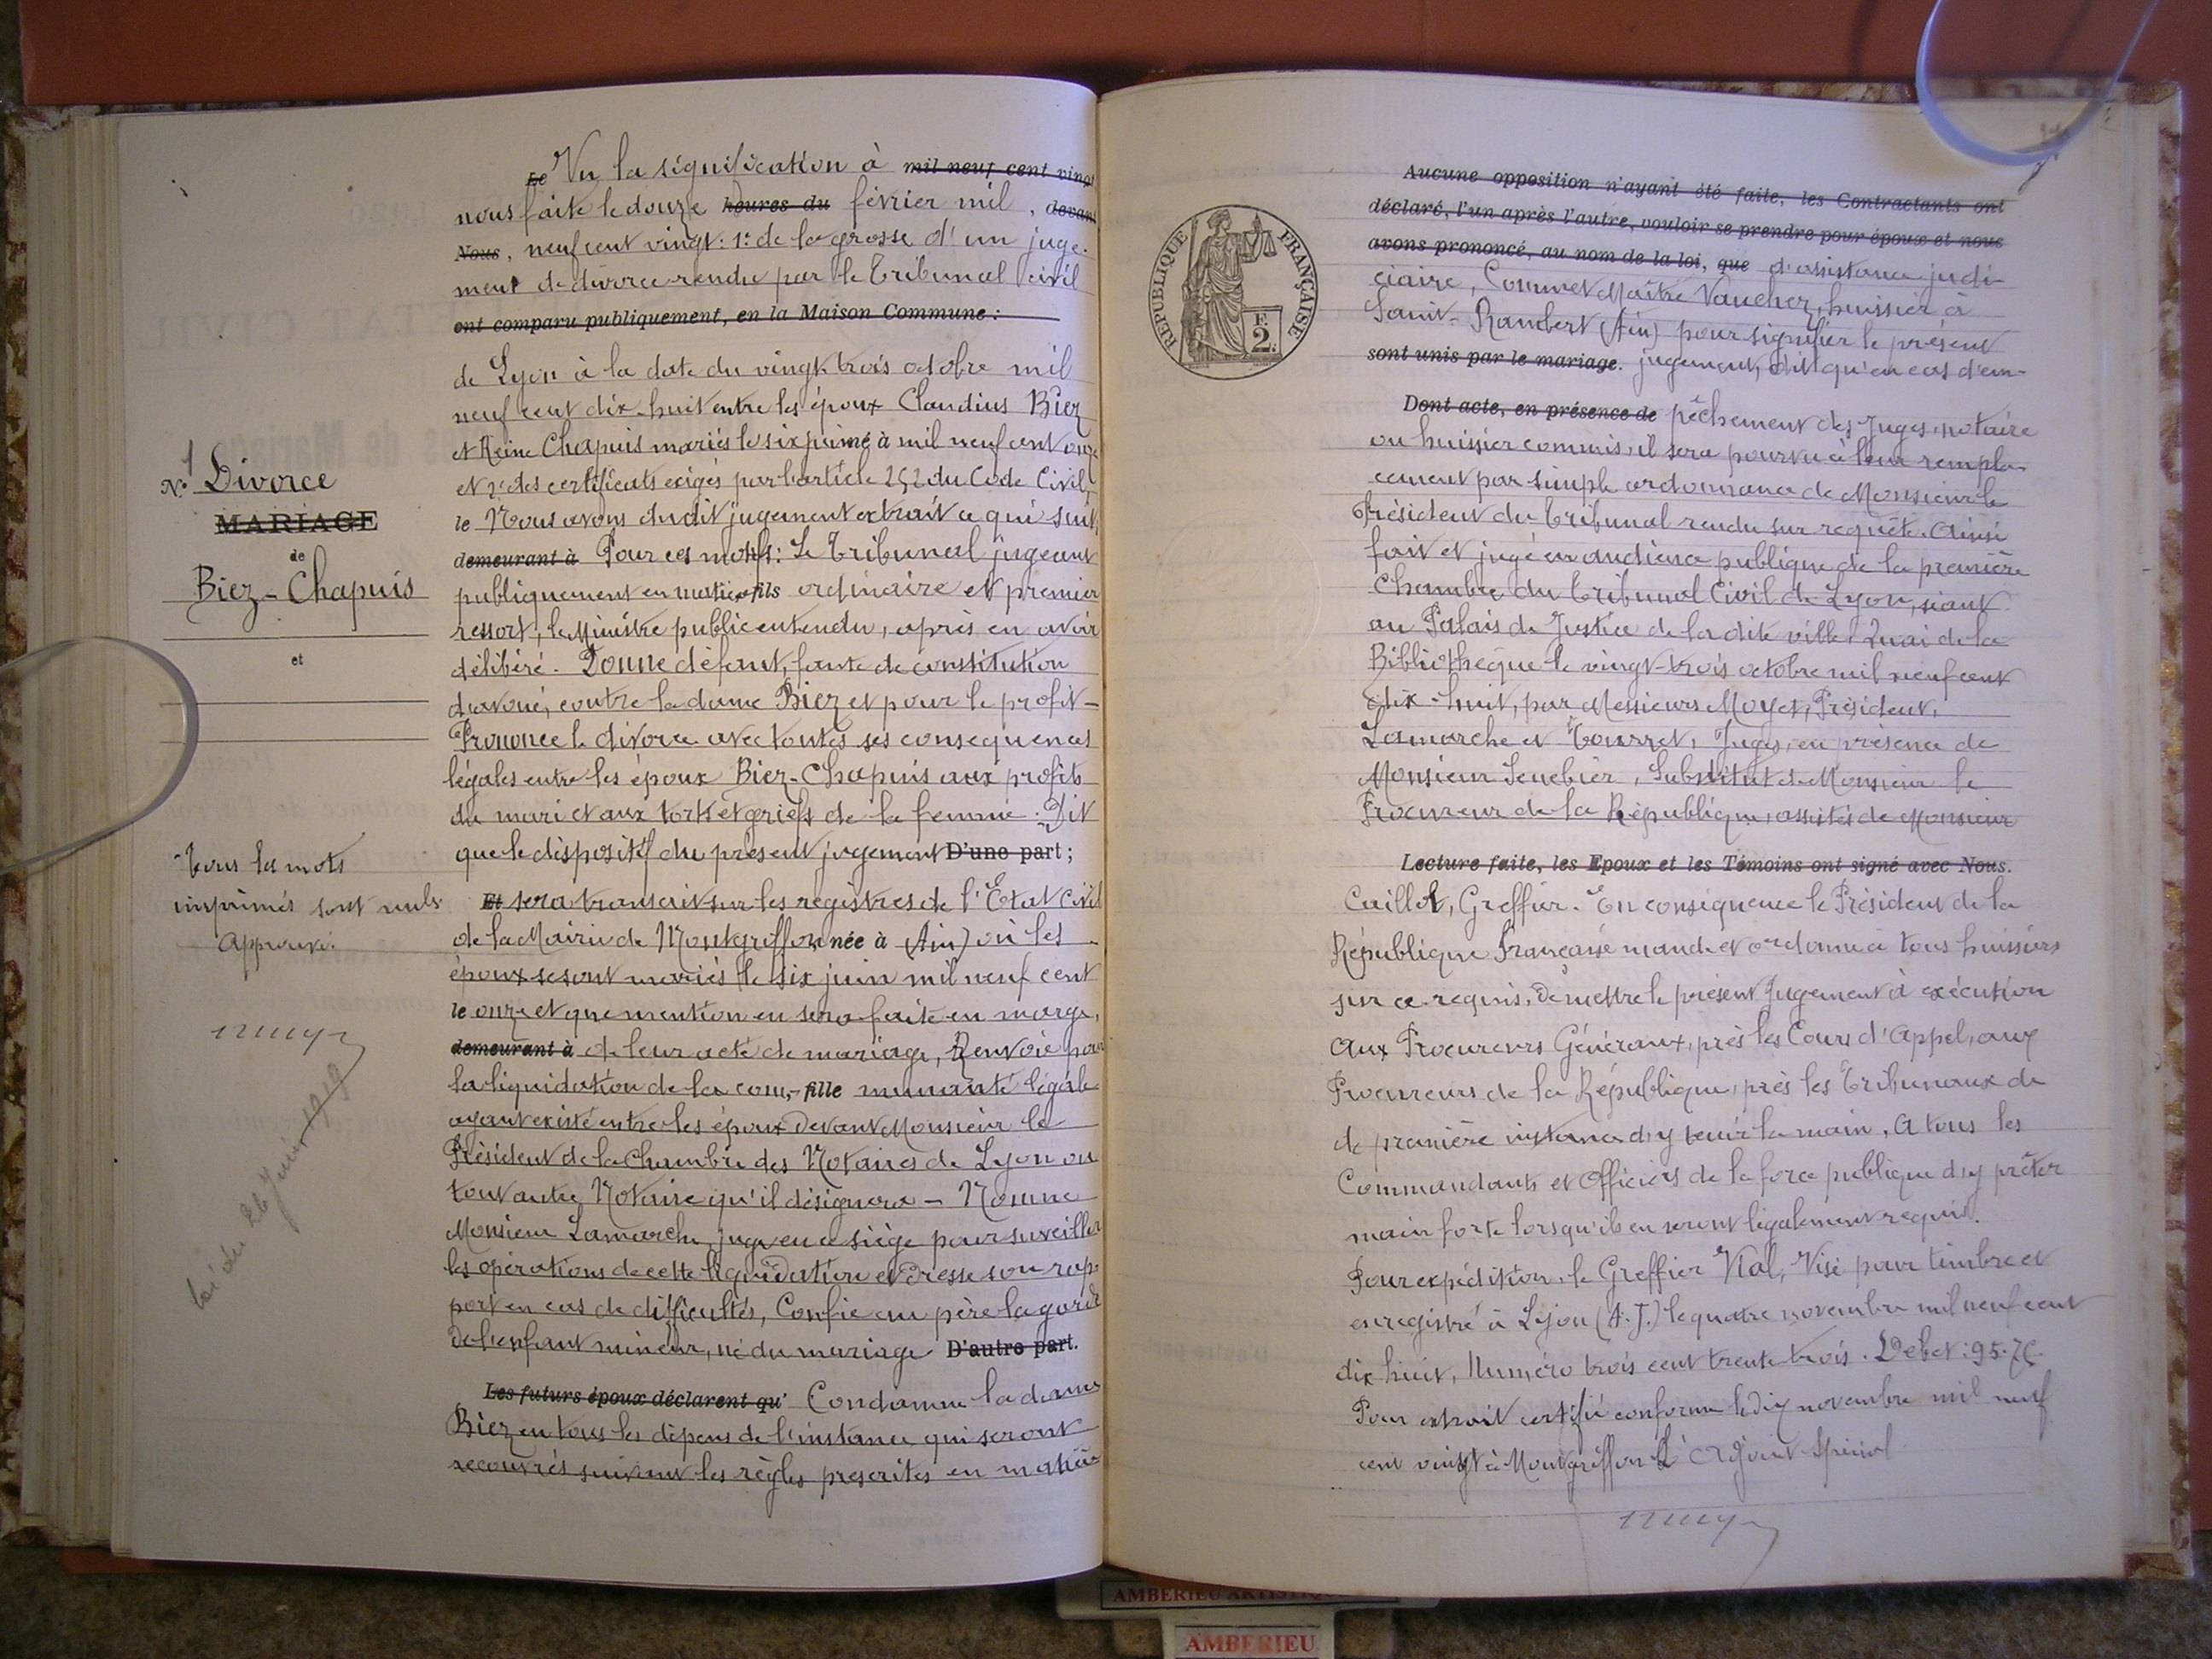 Le Vu la signification à mil neuf cent vingt
nous faite le douze heures du février mil, devant
Nous, neuf cent vingt: 1º de la grosse d'un juge-
ment de divorce rendu par le Tribunal civil
ont comparu publiquement, en la Maison Commune:
de Lyon à la date du vingt trois octobre mil
neuf cent dix-huit entre les époux Claudius Biez
et Reine Chapuis mariés le six juin né à mil neuf cent onze
et 2º des certificats exigés par l'article 252 du Code Civil,
le Nous avons dudit jugement extrait ce qui suit,
demeurant à Pour ces motifs: Le Tribunal jugeant
publiquement en matière fils ordinaire et premier
ressort, le Ministre public entendu, après en avoir
délibéré. Donne défaut, faute de constitution
d'avoué, contre la dame Biez et pour le profit-
Prononce le divorce avec toutes ses conséquences
légales entre les époux Biez-Chapuis aux profits
du mari et aux torts et griefs de la femme. Dit
que le dispositif du présent jugement D'une part;
Et sera transcrit sur les registres de l'Etat Civil
de la Mairie de Montgriffon née à (Ain) où les
époux se sont mariés le six juin mil neuf cent
le onze et que mention en sera faite en marge,
demeurant à de leur acte de mariage, Renvoie pour
la liquidation de la com- fille munauté légale
ayant existé entre les époux devant Monsieur le
Président de la Chambre des Notaires de Lyon ou
tout autre Notaire qu'il désignera - Nomme
Monsieur Lamarche, juge en ce siège pour surveiller
les opérations de cette liquidation et dresse son rap-
port en cas de difficultés, Confie au père la garde
de l'enfant mineur, né du mariage D'autre part.
Les futurs époux déclarent qu' Condamne la dame
Biez en tous les dépens de l'instance qui seront
recouvrés suivant les règles prescrites en matière
Nº 1 Divorce
MARIAGE
de
Biez-Chapuis
et
Tous les mots
imprimés sont nuls
Approuvé.
Loi du 26 Juin 1919
REPUBLIQUE FRANÇAISE
F.
2.
Aucune opposition n'ayant été faite, les Contractants ont
déclaré, l'un après l'autre, vouloir se prendre pour époux et nous
avons prononcé, au nom de la loi, que d'assistance judi-
ciaire, Commet Maître Vaucher, huissier à
Saint-Rambert (Ain) pour signifier le présent
sont unis par le mariage. jugement, dit qu'en cas d'em-
Dont acte, en présence de pêchement des Juges, notaire
ou huissier commis, il sera pourvu à leur rempla-
cement par simple ordonnance de Monsieur le
Président du Tribunal rendu sur requête. Ainsi
fait et jugé en audience publique de la première
Chambre du Tribunal Civil de Lyon, séant
au Palais de Justice de la dite ville, Quai de la
Bibliothèque le vingt-trois octobre mil neuf cent
dix-huit, par Messieurs Moyet, Président,
Lamarche et Tourret, Juges, en présence de
Monsieur Senebier, Substitut de Monsieur le
Procureur de la République, assistés de Monsieur
Lecture faite, les Epoux et les Témoins ont signé avec Nous.
Caillot, Greffier. En conséquence le Président de la
République Française mande et ordonne à tous huissiers
sur ce requis, de mettre le présent Jugement à exécution
Aux Procureurs Généraux, près les Cours d'Appel, aux
Procureurs de la République, près les Tribunaux de
de première instance d'y tenir la main, A tous les
Commandants et Officiers de la force publique d'y prêter
main forte lorsqu'ils en seront légalement requis.
Pour expédition, le Greffier Vial, Visé pour timbre et
enregistré à Lyon (A.J.) le quatre novembre mil neuf cent
dix huit, Numéro trois cent trente trois. Debet:
Pour extrait certifié conforme le dix novembre mil neuf
cent vingt à Montgriffon L'Adjoint Spécial
AMBERIEU ARTISTIQUE
AMBERIEU